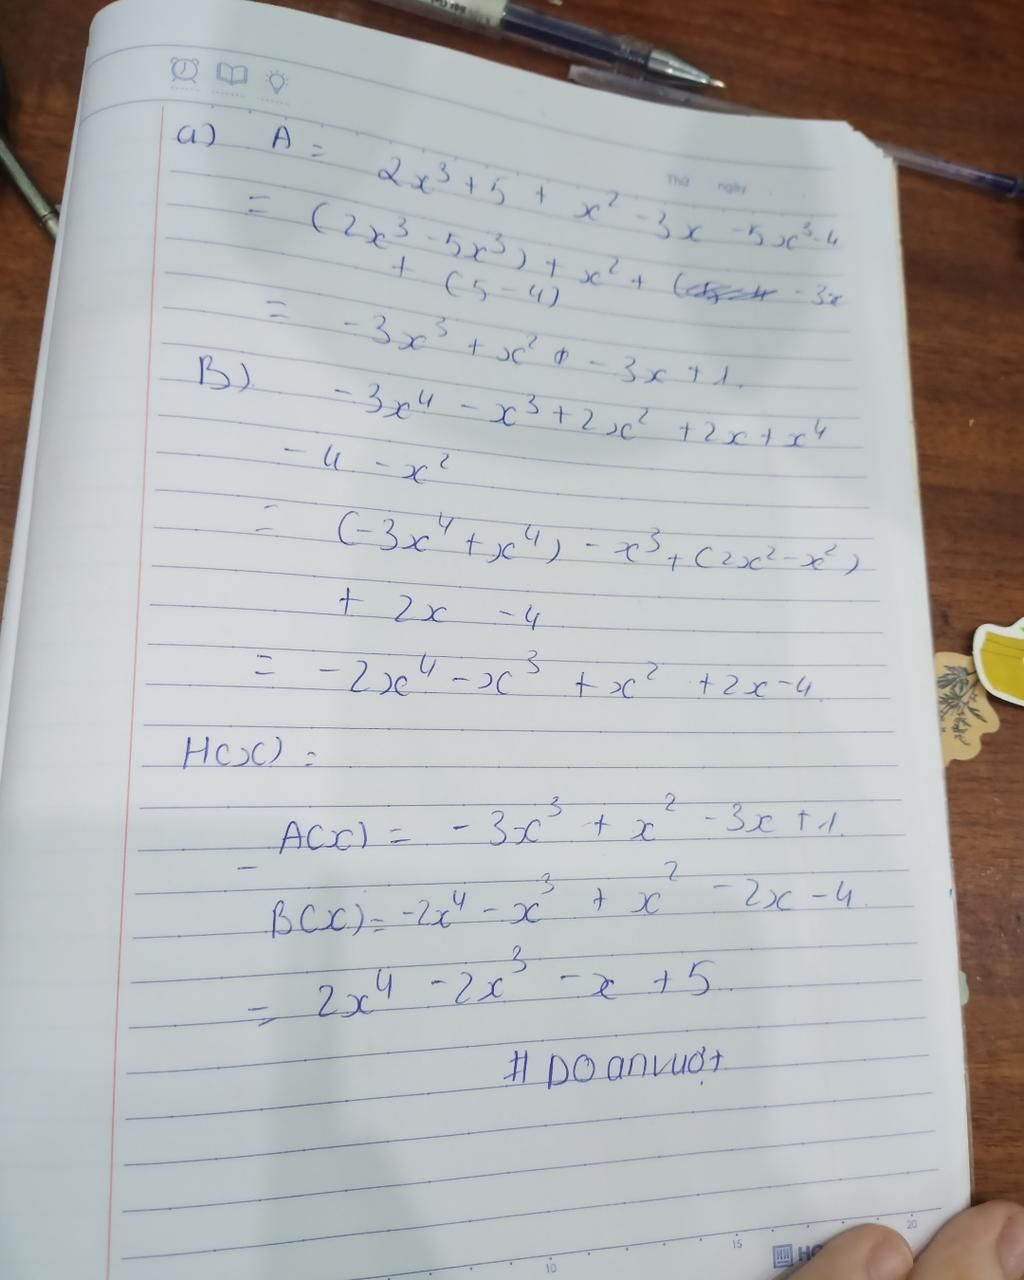 Thứ ngày
a) A = 2x³ + 5 + x² - 3x - 5x³ - 4
= (2x³ - 5x³) + x² + ( - 3x
+ (5 - 4)
= -3x³ + x² - 3x + 1.
B) -3x⁴ - x³ + 2x² + 2x + x⁴
- 4 - x²
= (-3x⁴ + x⁴) - x³ + (2x² - x²)
+ 2x - 4
= -2x⁴ - x³ + x² + 2x - 4
H(x) =
A(x) = -3x³ + x² - 3x + 1.
-
B(x) = -2x⁴ - x³ + x² - 2x - 4
= 2x⁴ - 2x³ - x + 5
# DOanvượt
10 15 20